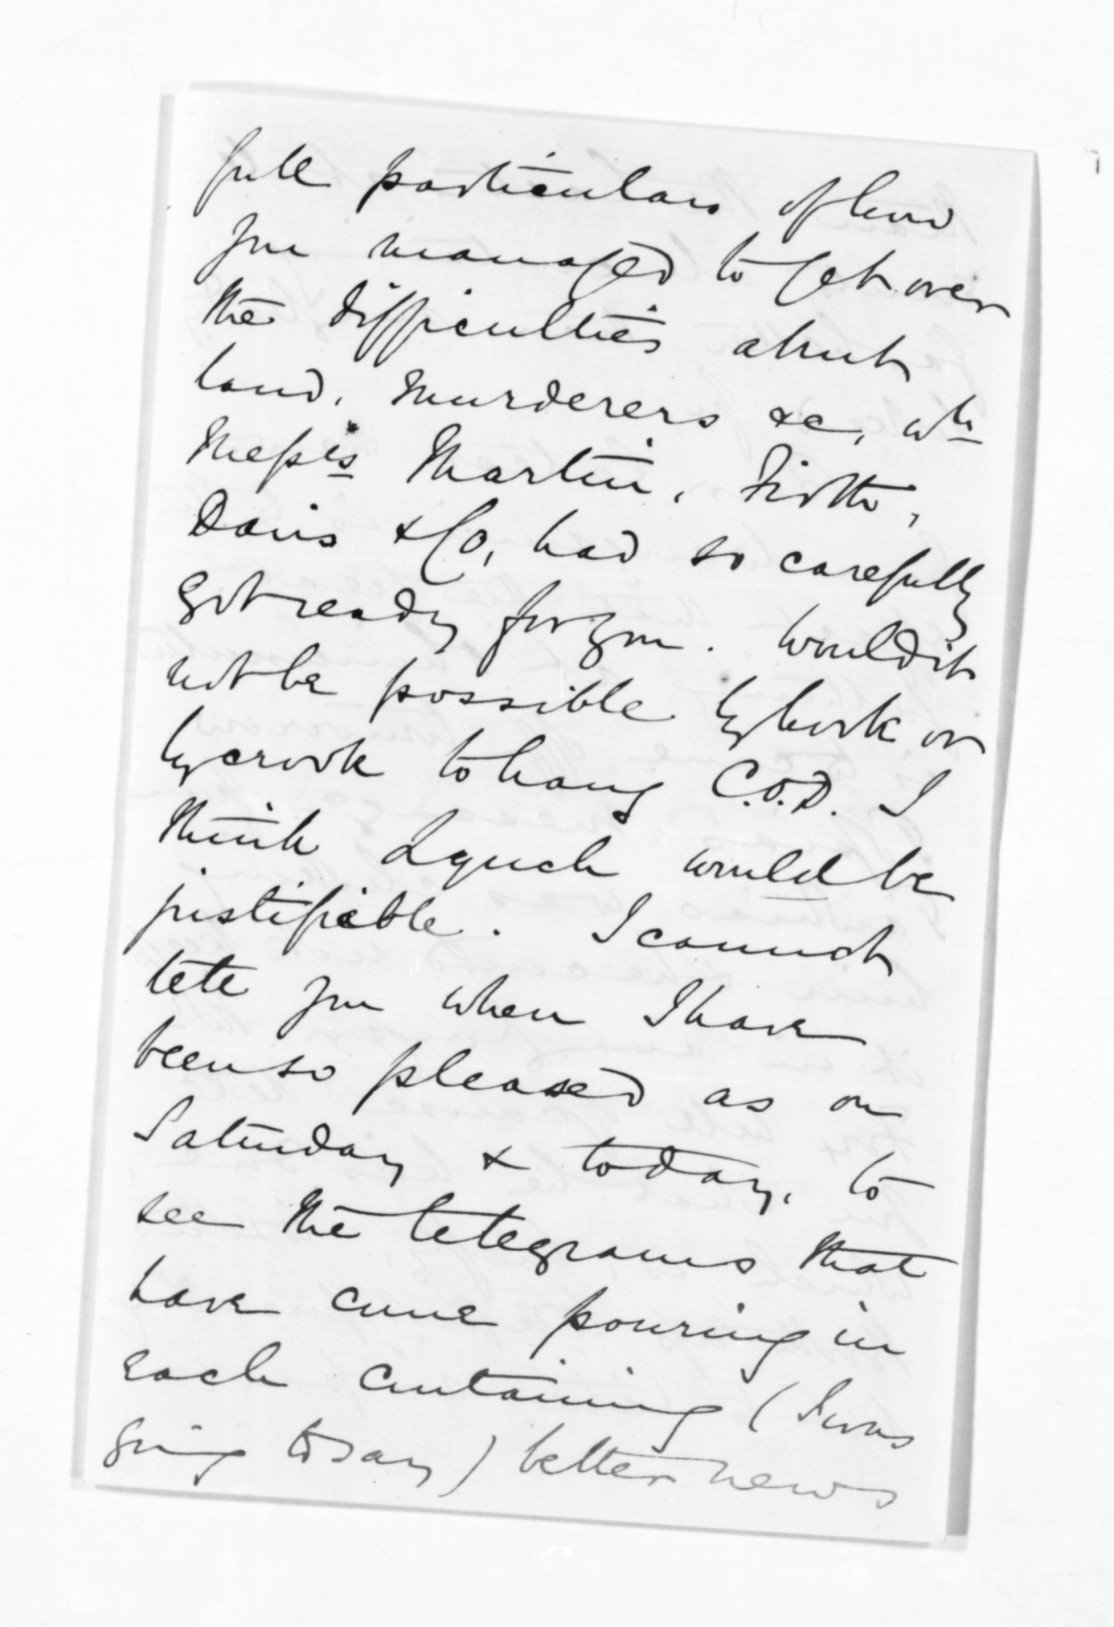 full particulars of how
you managed to get over
the difficulties about
land, murderers &c, wh
Messrs Martin, Firth,
Davis & Co, had so carefully
got ready for you. Would it
not be possible by hook or
by crook to hang C.O.D. I
think Lynch would be
justifiable. I cannot
tele you when I have
been so pleased as on
Saturday & today, to
see the telegrams that
have come pouring in
each containing (I was
going to say) better news